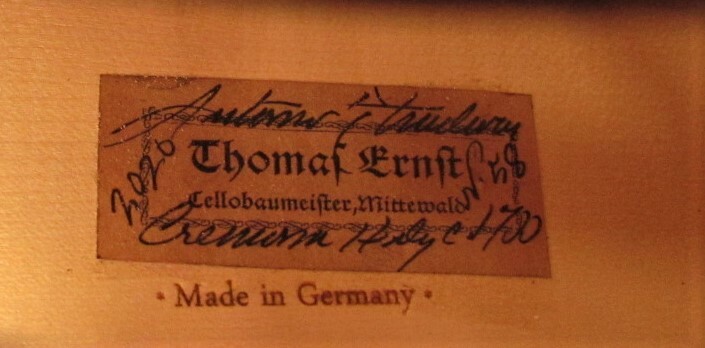 Antonio Stradivari
Thomas Ernst
Cellobaumeister, Mittewald
Cremona Italy c 1700
• Made in Germany •